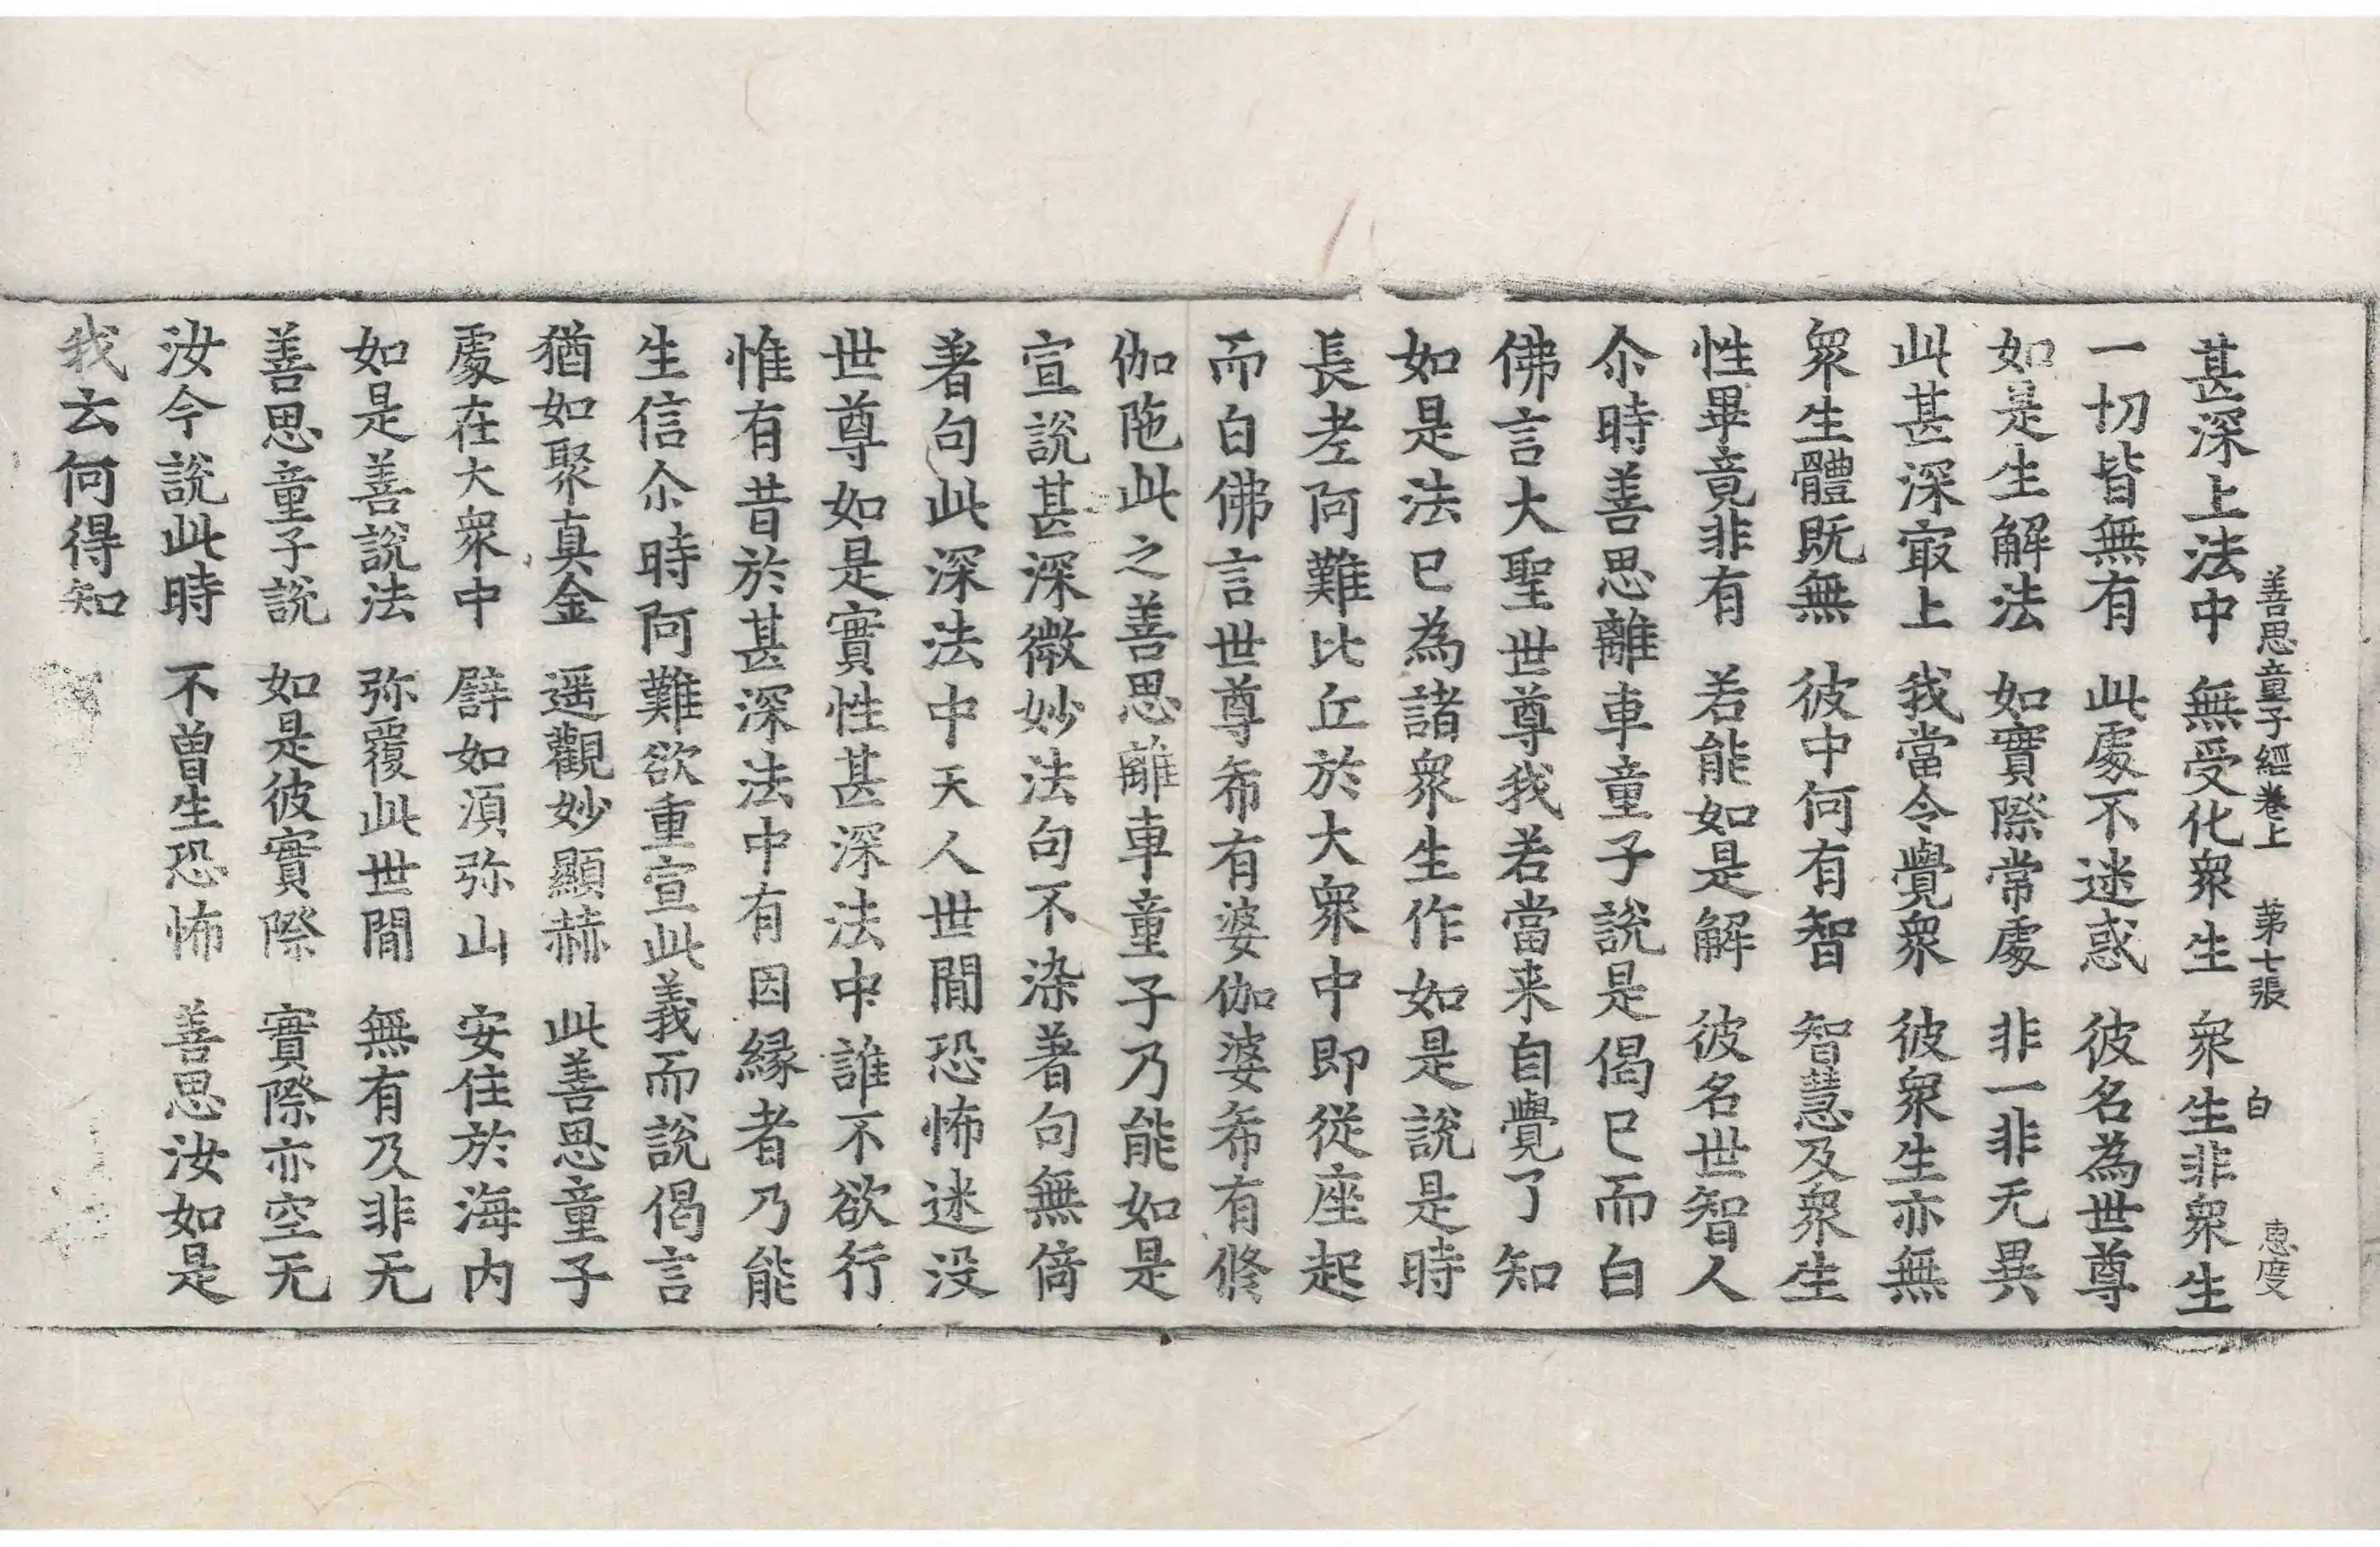 善思童子經卷上 第七張 白 惠度
甚深上法中 無受化衆生 衆生非衆生
一切皆無有 此處不迷惑 彼名為世尊
如是生解法 如實際常處 非一非无異
此甚深㝡上 我當令覺衆 彼衆生亦無
衆生體既無 彼中何有智 智慧及衆生
性畢竟非有 若能如是解 彼名世智人
尒時善思離車童子說是偈已而白
佛言大聖世尊我若當来自覺了知
如是法已為諸衆生作如是說是時
長老阿難比丘於大衆中即從座起
而白佛言世尊希有婆伽婆希有修
伽陁此之善思離車童子乃能如是
宣說甚深微妙法句不染著句無倚
著句此深法中天人世間恐怖迷没
世尊如是實性甚深法中誰不欲行
惟有昔於甚深法中有因緣者乃能
生信尒時阿難欲重宣此義而說偈言
猶如聚真金 遥觀妙顯赫 此善思童子
處在大衆中 譬如湏弥山 安住於海内
如是善說法 弥覆此世間 無有及非无
善思童子說 如是彼實際 實際亦空无
汝今說此時 不曾生恐怖 善思汝如是
我云何得知